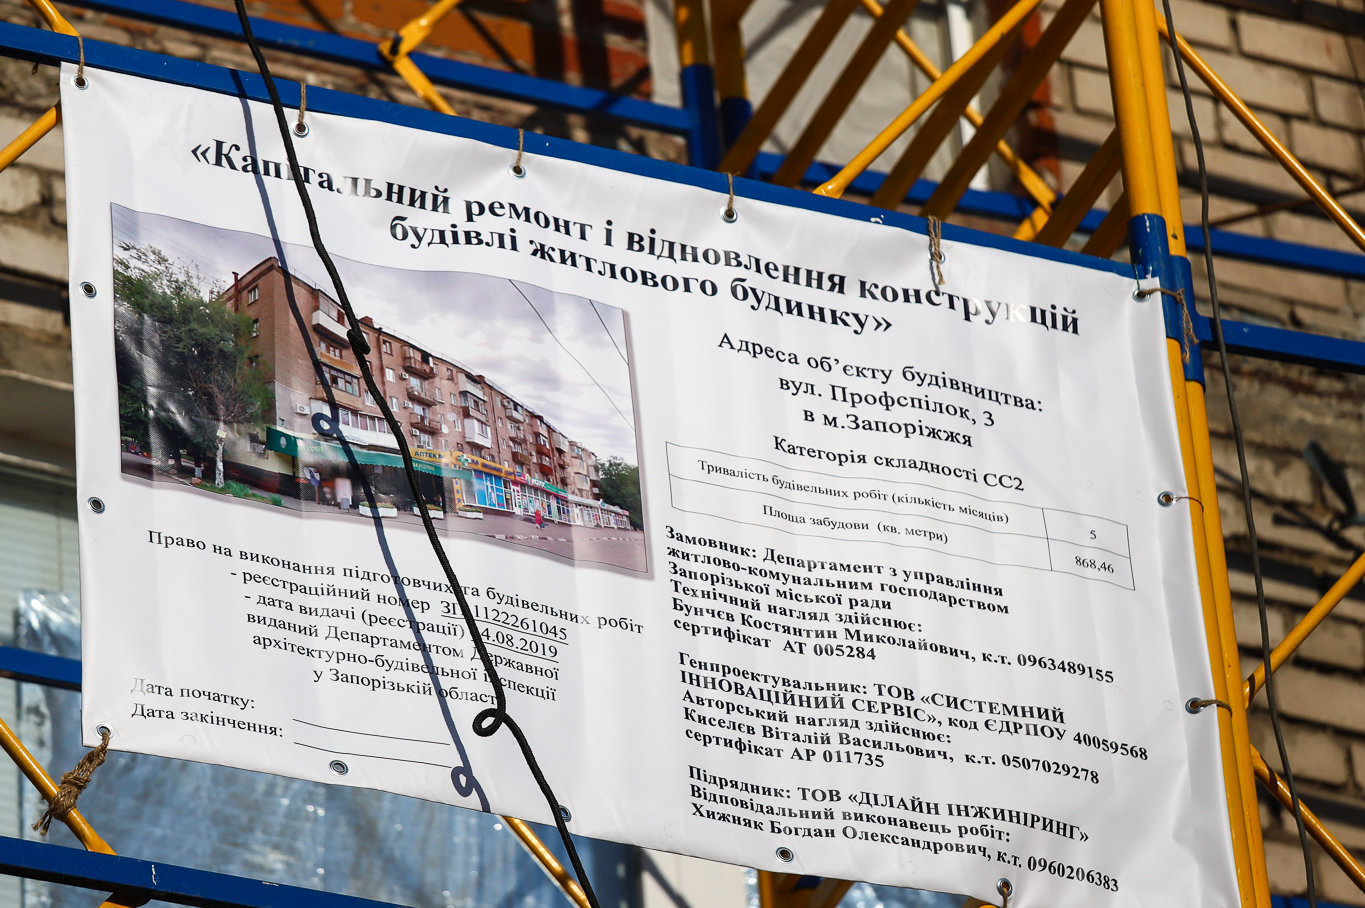 «Капітальний ремонт і відновлення конструкцій
будівлі житлового будинку»
Адреса об’єкту будівництва:
вул. Профспілок, 3
в м.Запоріжжя
Категорія складності СС2
Тривалість будівельних робіт (кількість місяців) 5
Площа забудови (кв. метри) 868,46
Замовник: Департамент з управління
житлово-комунальним господарством
Запорізької міської ради
Технічний нагляд здійснює:
Бунчєв Костянтин Миколайович, к.т. 0963489155
сертифікат АТ 005284
Генпроектувальник: ТОВ «СИСТЕМНИЙ
ІННОВАЦІЙНИЙ СЕРВІС», код ЄДРПОУ 40059568
Авторський нагляд здійснює:
Киселєв Віталій Васильович, к.т. 0507029278
сертифікат АР 011735
Підрядник: ТОВ «ДІЛАЙН ІНЖИНІРИНГ»
Відповідальний виконавець робіт:
Хижняк Богдан Олександрович, к.т. 0960206383
АПТЕК
Право на виконання підготовчих та будівельних робіт
- реєстраційний номер ЗП 1122261045
- дата видачі (реєстрації) 4.08.2019
виданий Департаментом Державної
архітектурно-будівельної інспекції
у Запорізькій області
Дата початку:
Дата закінчення: